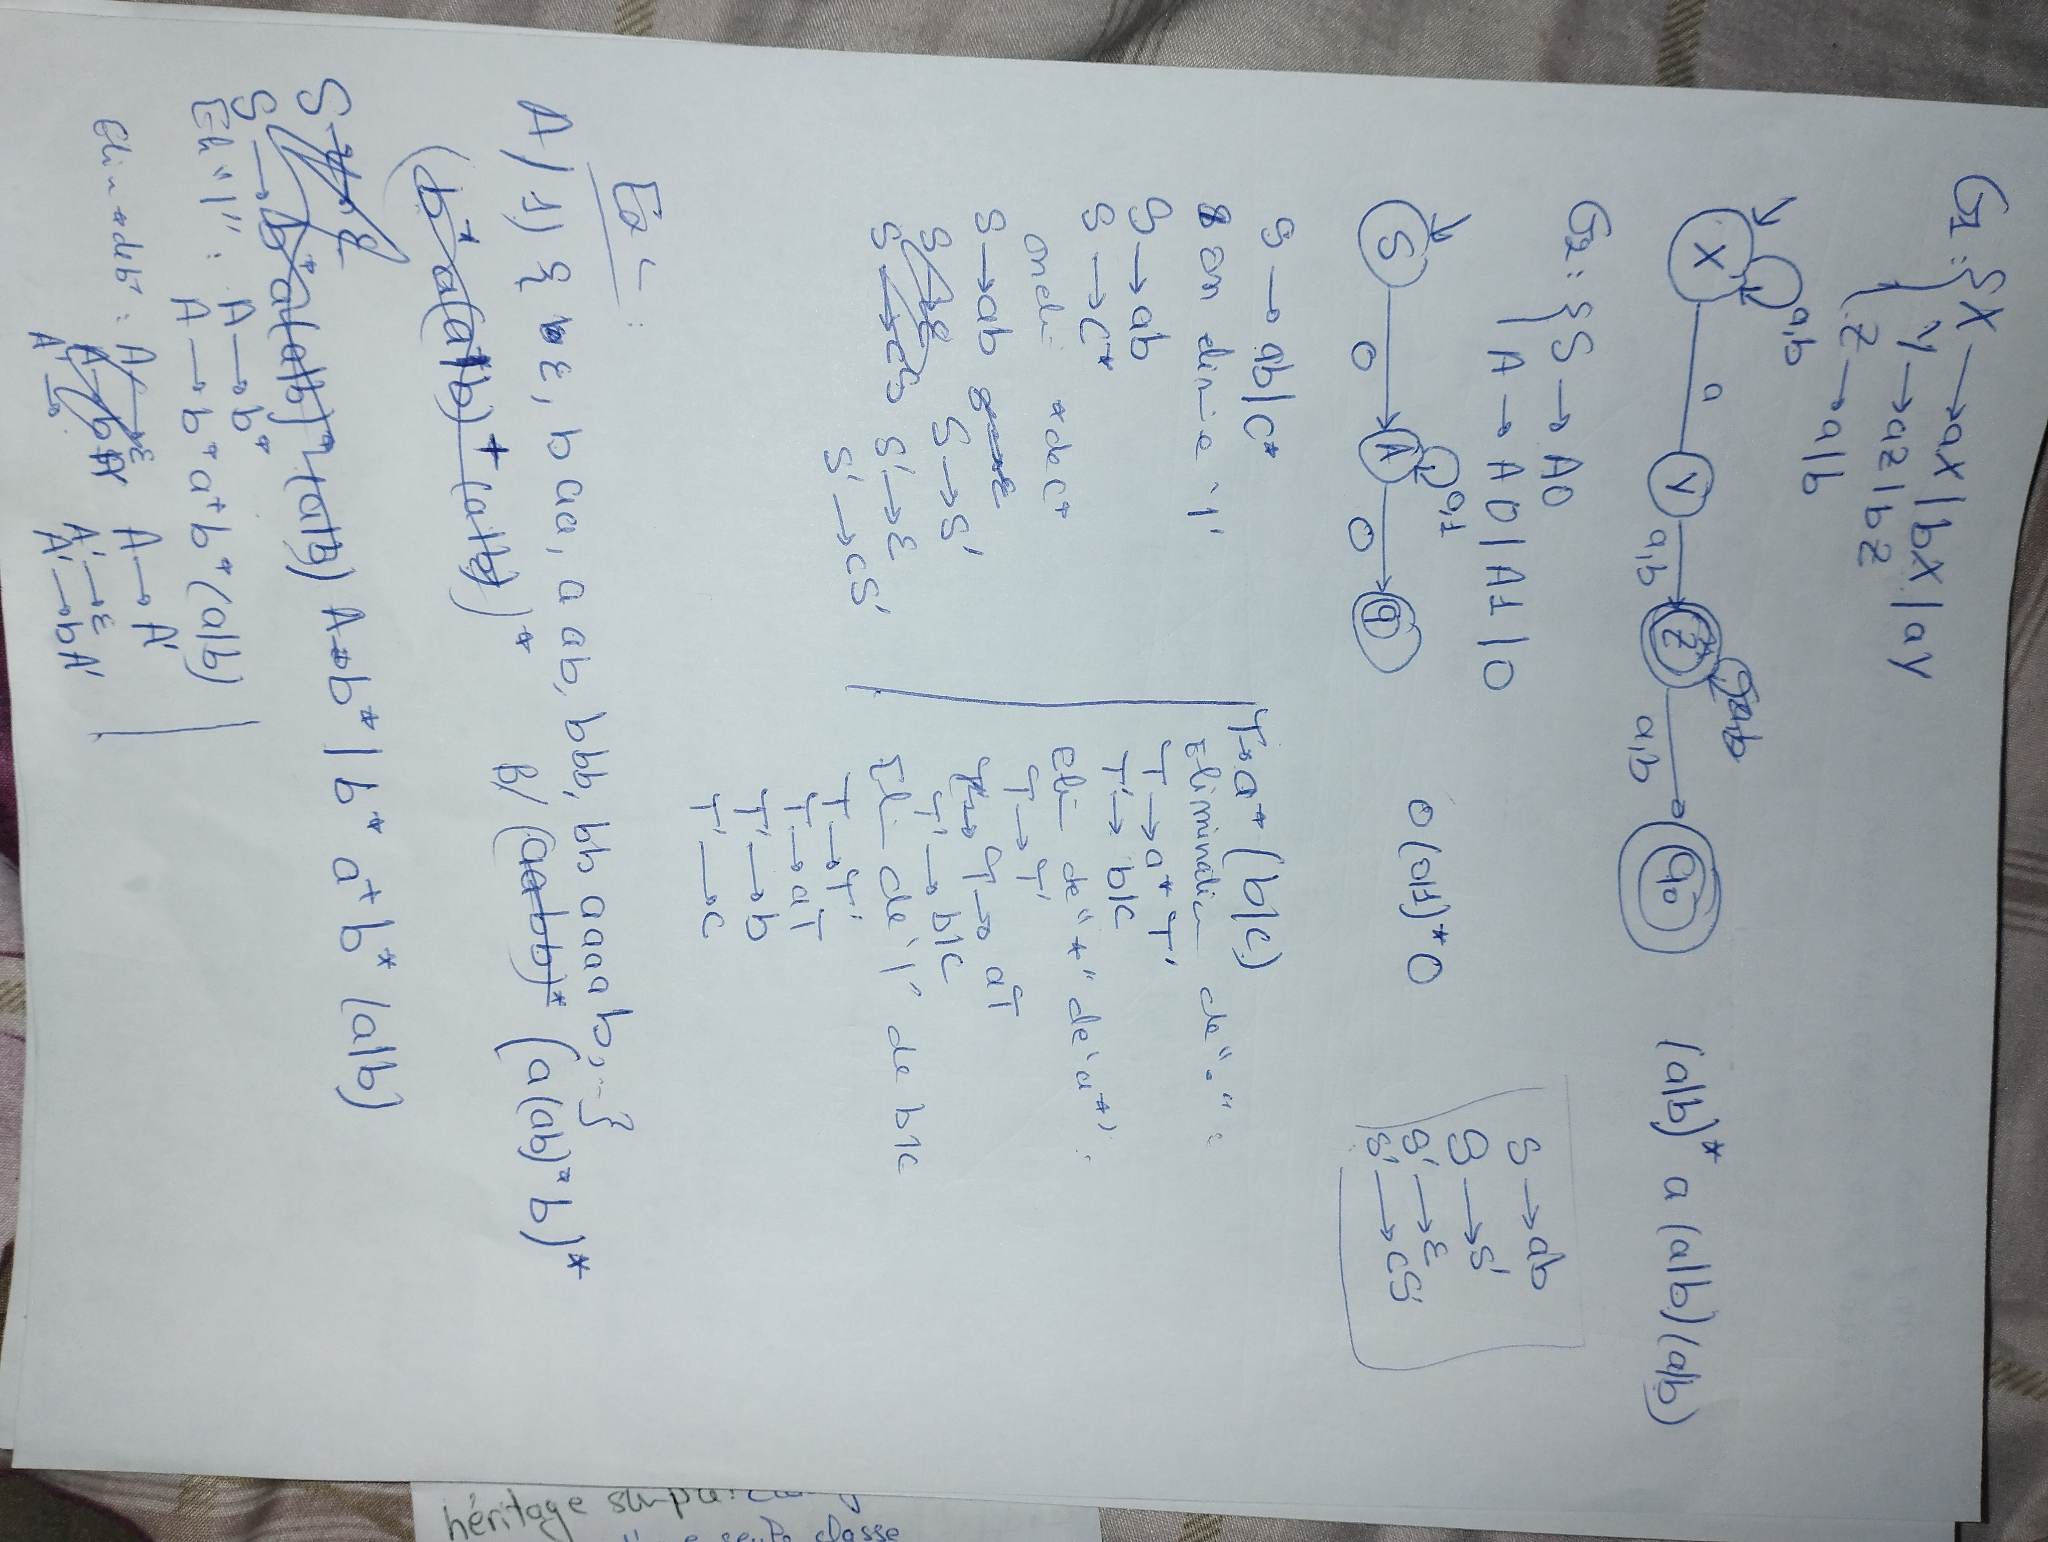 G1: { X → aX | bX | aY
Y → aZ | bZ
Z → a | b
a,b
X a Y a,b Z a,b a,b q0
(a|b)* a (a|b) (a|b)
G2: { S → A0
A → A0 | A1 | 0
0,1
S 0 A 0 q
0 (0|1)* 0
S → ab
S → S'
S' → ε
S' → cS'
S → ab | c*
on elimie '|'
S → ab
S → c*
on eli * de c*
S → ab
S → S'
S' → ε
S' → cS'
T → a* (b|c)
Elimination de "." :
T → a* T'
T' → b|c
eli de "*" de 'a*' :
T → T'
T → aT
T' → b|c
Eli de '|' de b|c
T → T'
T → aT
T' → b
T' → c
A/ 1) { ε, baa, aab, bbb, bbaaaab, .. }
B/ (aabb)* (a(ab)*b)*
A → b* | b* a+ b* (a|b)
Eli "|" : A → b*
A → b* a+ b* (a|b)
Elim * de b* :
A → A'
A' → ε
A' → bA'
héritage